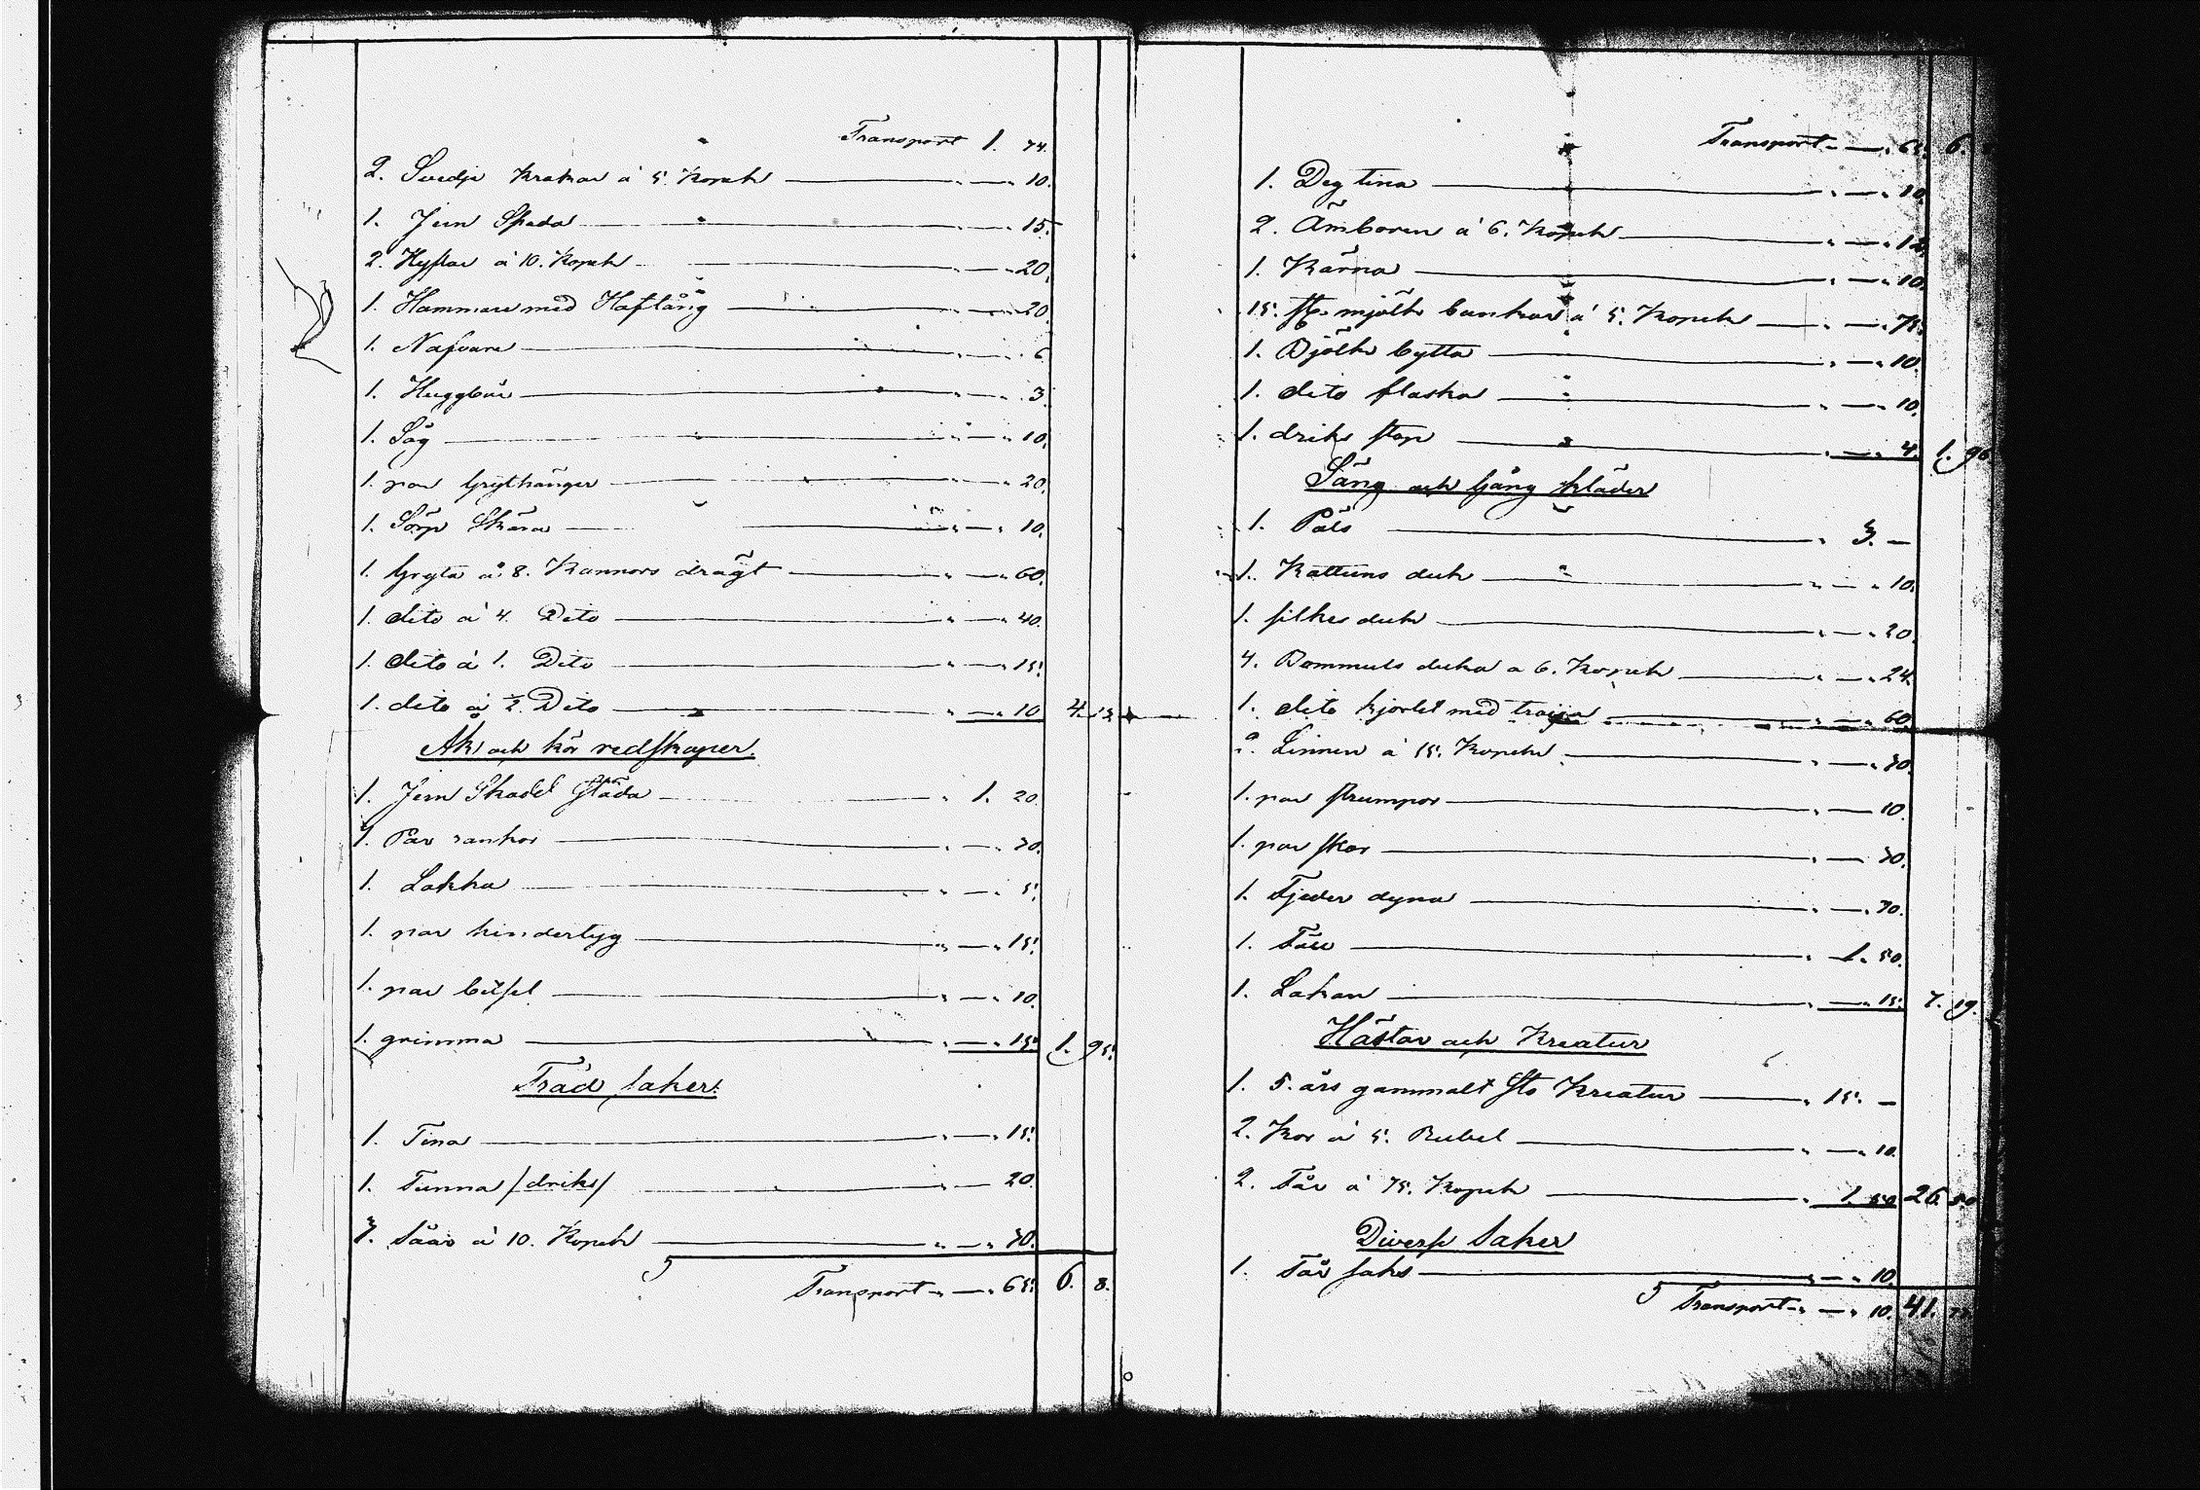 Transport 1. 74.
2. Svedje Krakar à 5. Kopek — 10.
1. Jern Spada — 15.
2. Hyflar à 10. Kopek — 20.
1. Hammare med Hoftång — 20.
1. Nafvare — 6
1. Huggbår — 3
1. Såg — 10.
1. par Grythänger — 20.
1. Sörp Skära — 10.
1. Gryta à 8. Kannors drägt — 60.
1. dito à 4. Dito — 40.
1. dito à 1. Dito — 15.
1. dito à ½ Dito — 10 4. 13
Åk och kör redskaper.
1. Jern Skodd Släda 1. 20.
1. Par rankor — 30.
1. Lokka — 5.
1. par hindertyg — 15.
1. par betsel — 10.
1. grimma — 15. 1. 95.
Träd saker.
1. Tina — 15.
1. Tunna /driks/ — 20.
3. Såar à 10. Kopek — 30.
Transport — 65. 6. 8.
Transport — 65. 6.
1. Deg tina — 10.
2. Ämboren à 6. Kopek — 12.
1. Kärna — 10.
15. st. mjölk bunkar à 5. Kopek — 75.
1. Mjölk bytta — 10.
1. dito flaska — 10.
1. driks stop — 4. 1. 96
Säng och Gång kläder
1. Päls 3. —
1. Kattuns duk — 10.
1. silkes duk — 20.
4. Bommuls dukar a 6. Kopek — 24.
1. dito kjortel med tröija — 60.
2. Linnen à 15. Kopek — 30.
1. par strumpor — 10.
1. par skor — 30.
1. Fjeder dyna — 30.
1. Fäll 1. 50.
1. Lakan — 15. 7. 19.
Hästar och Kreatur
1. 5. års gammalt Sto Kreatur 15. —
2. Kor à 5. Rubel — 10.
2. Får à 75. Kopek 1. 50 26. 50
Diverse Saker
1. Får saks — 10.
Transport — 10. 41. 73.